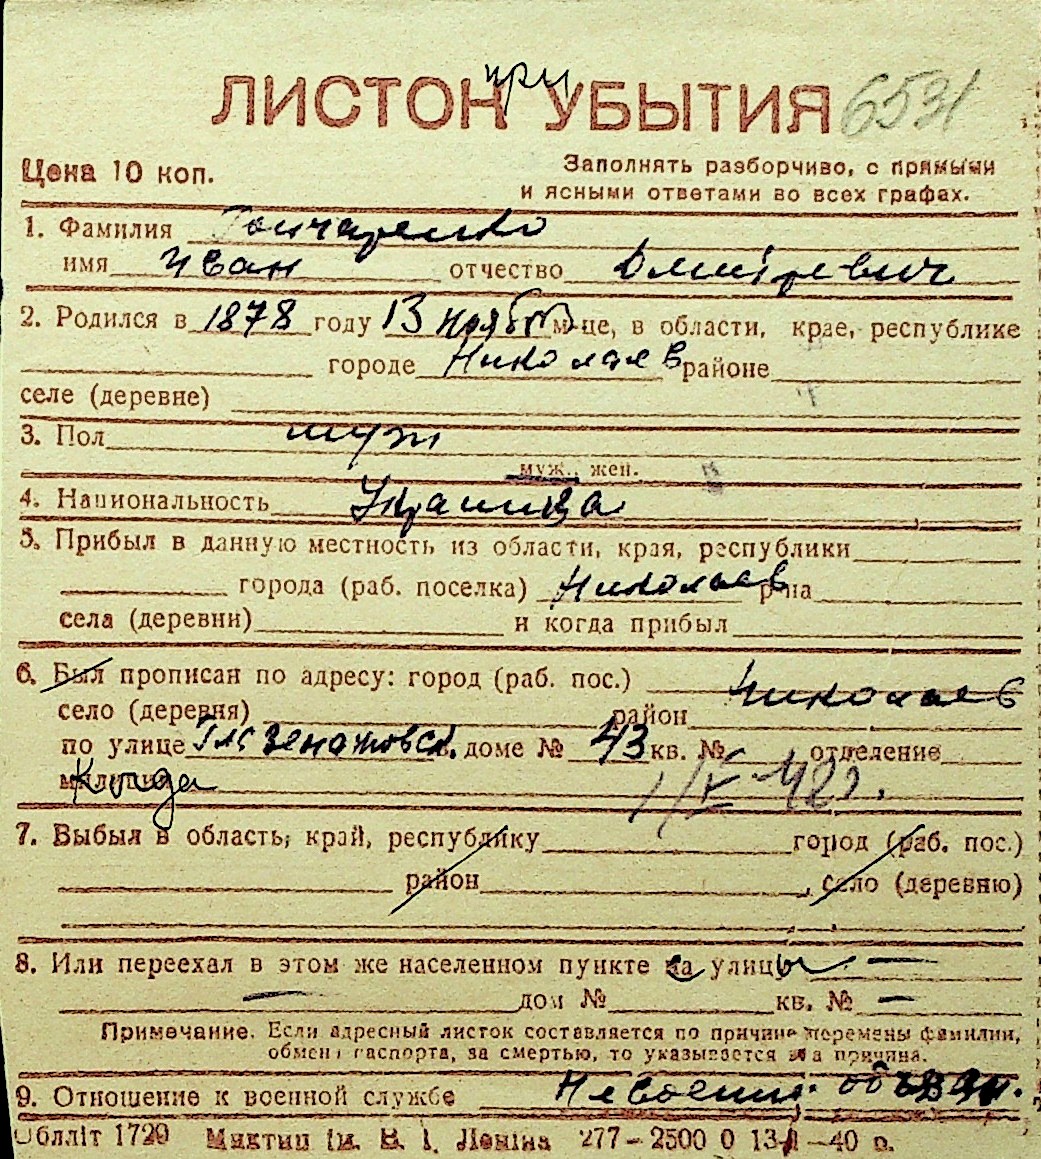 ЛИСТОК при УБЫТИЯ 6531
Цена 10 коп.
Заполнять разборчиво, с прямыми
и ясными ответами во всех графах.
1. Фамилия Гончаренко
имя Иван отчество Дмитревич
2. Родился в 1878 году 13 ноября м-це, в области, крае, республике
городе Николаев районе
селе (деревне)
3. Пол муж
муж., жен.
4. Национальность
5. Прибыл в данную местность из области, края, республики
города (раб. поселка) Николаев р-на
села (деревни) и когда прибыл
6. Был прописан по адресу: город (раб. пос.) Николаев
село (деревня) район
по улице доме № 43 кв. № отделение
милиции Когда
7. Выбыл в область, край, республику город (раб. пос.)
район, село (деревню)
8. Или переехал в этом же населенном пункте с улицы —
— дом № кв. № —
Примечание. Если адресный листок составляется по причине перемены фамилии,
обмена паспорта, за смертью, то указывается эта причина.
9. Отношение к военной службе Не военно обязан.
Облліт 1720 ім. В. І. Леніна 277-2500 0